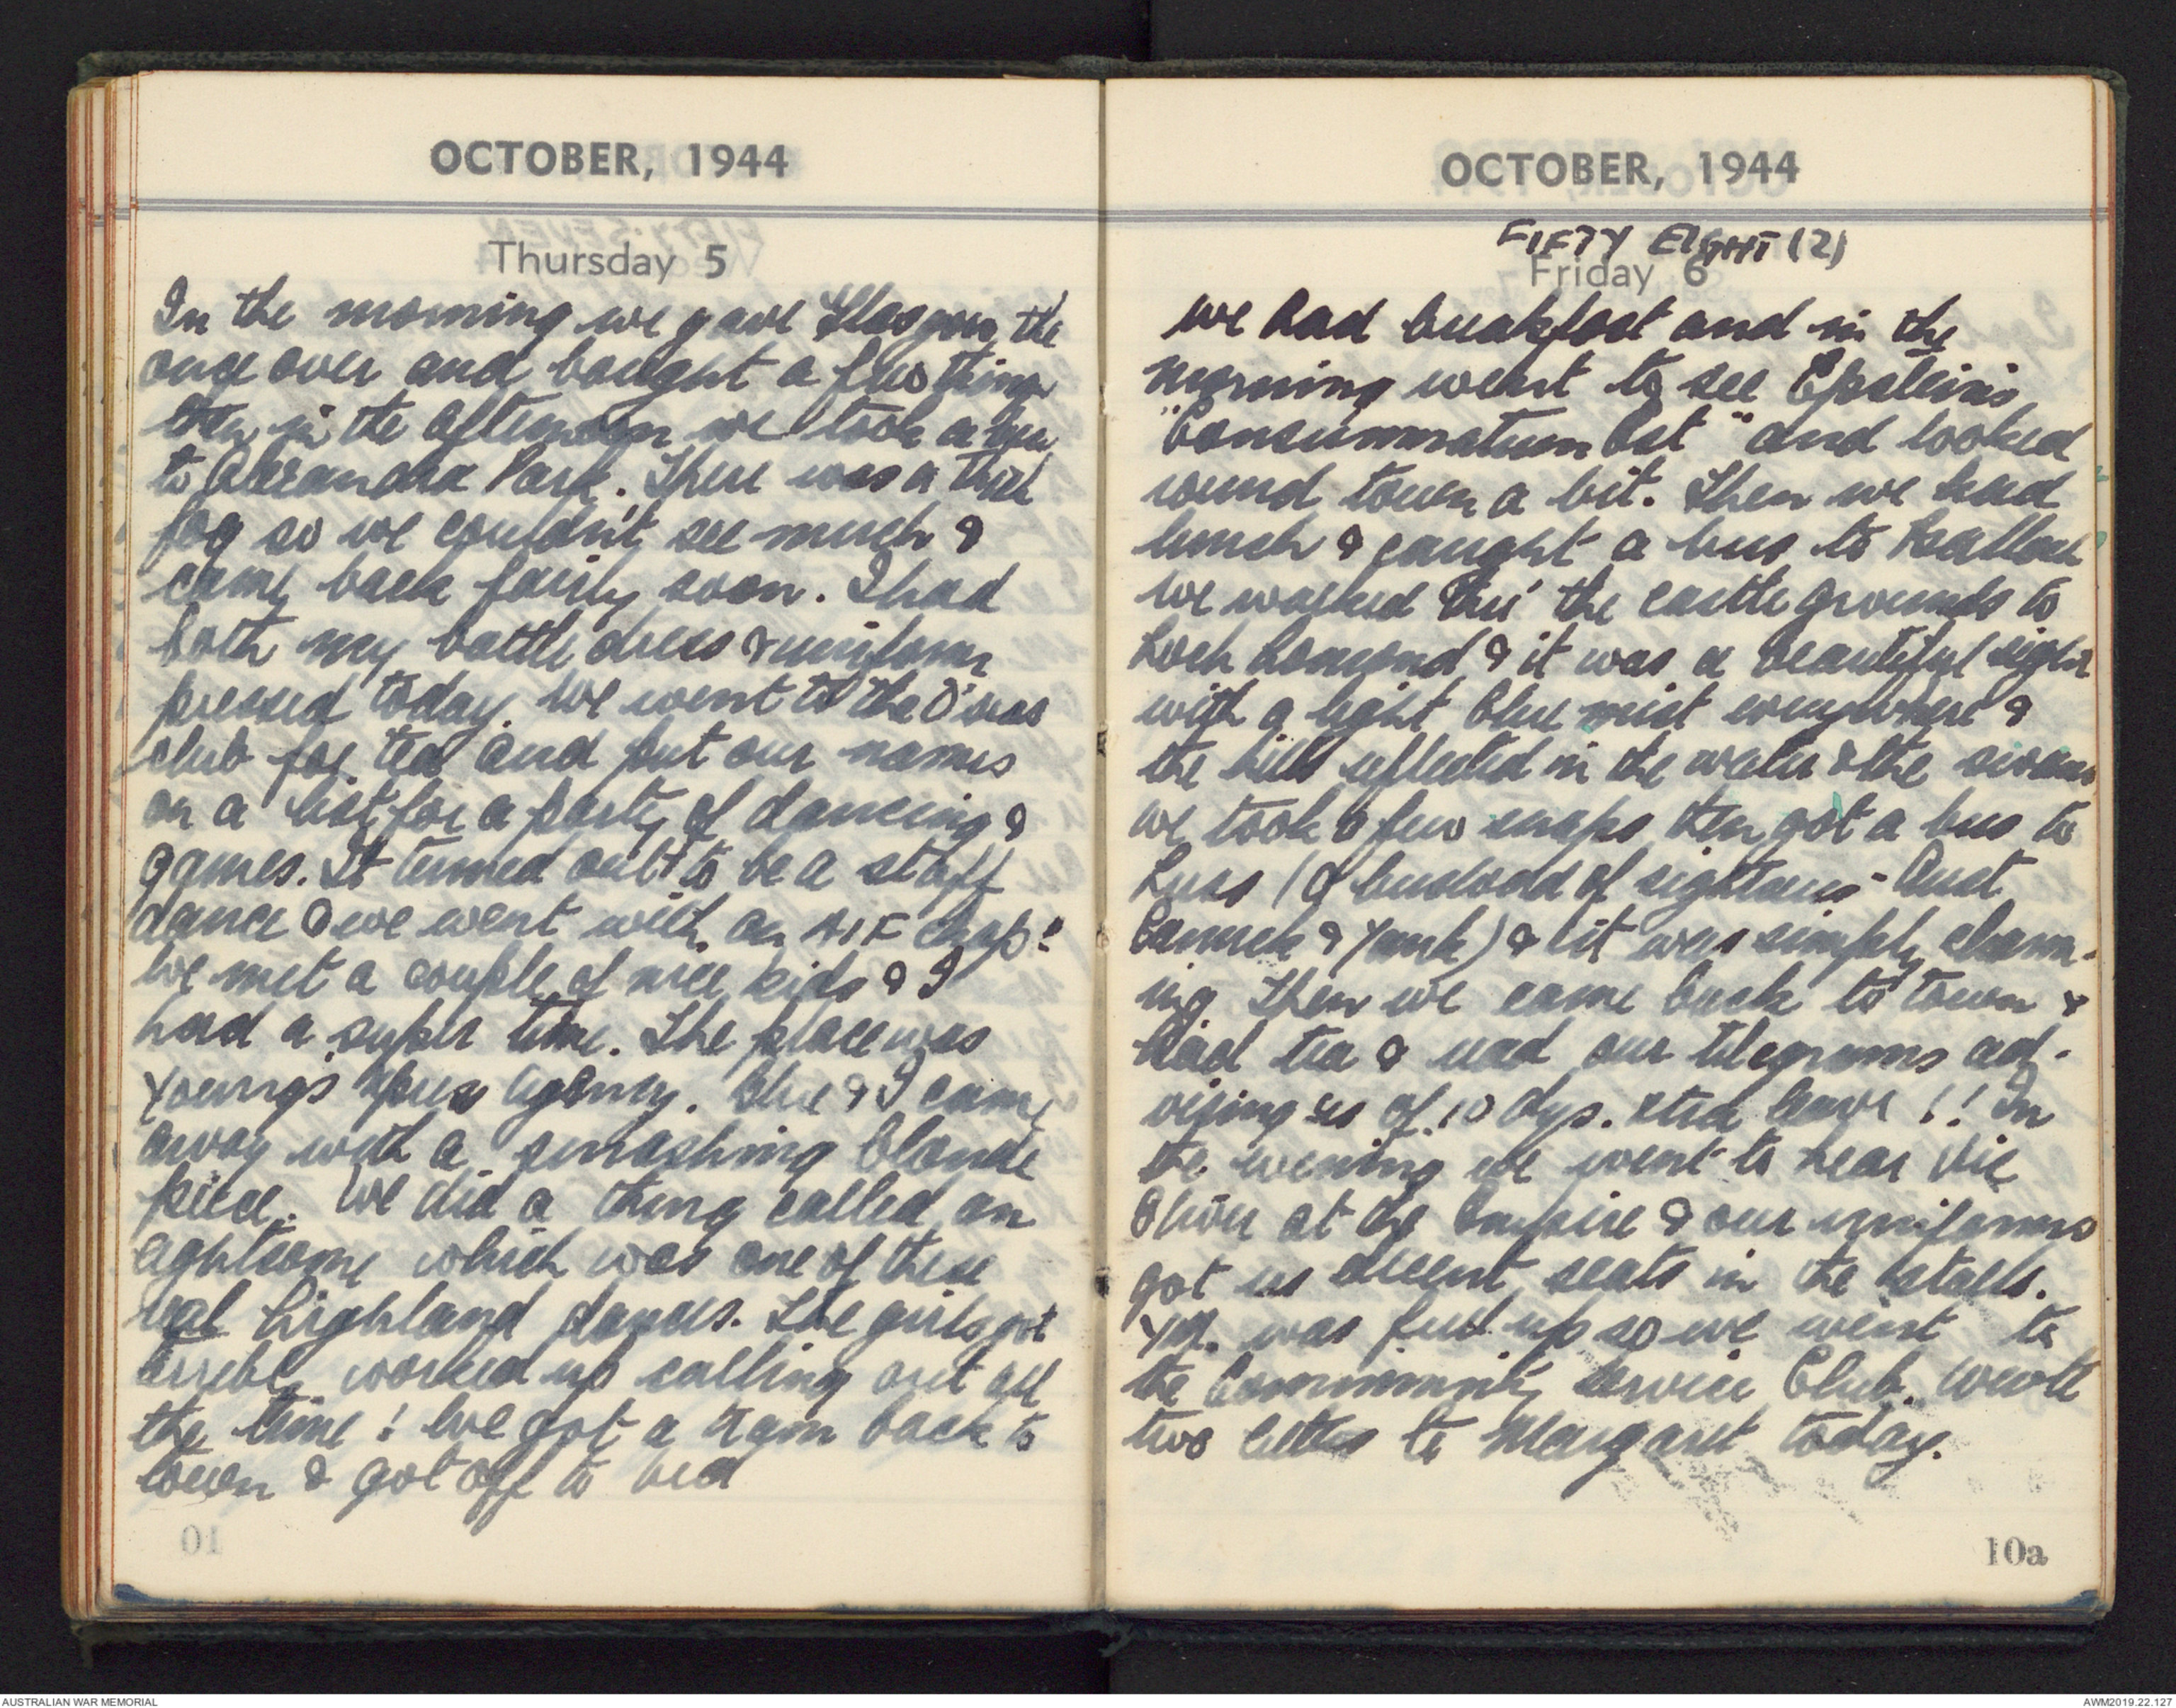 OCTOBER, 1944
Thursday 5
In the morning we gave Glasgow the
once over and bought a few things
then in the afternoon we took a bus
to Alexandra Park. There was a thick
fog so we couldn't see much &
came back fairly soon. I had
both my battle dress & uniform
pressed today. We went to the O'seas
club for tea and put our names
on a list for a party of dancing &
games. It turned out to be a staff
dance & we went with an AIF chap!
We met a couple of nice kids & I
had a super time. The place was
Youngs' Agency. Blue & I came
away with a smashing blonde
piece. We did a thing called an
eightsome which was one of these
real highland dances. The girls got
terribly worked up calling out all
the time! We got a tram back to
town & got off to bed
10
OCTOBER, 1944
FIFTY EIGHT (2)
Friday 6
We had breakfast and in the
morning went to see Epstein's
"Consummatum Est" and looked
round town a bit. Then we had
lunch & caught a bus to Balloch
We walked thru' the castle grounds to
Loch Lomond & it was a beautiful sight
with a light blue mist everywhere &
the hills reflected in the water & the swans
We took a few snaps then got a bus to
Luss (a busload of sightseers - Aust
Canuck & Yank) & it was simply charm-
ing Then we came back to town &
had tea & read our telegrams ad-
vising us of 10 dys. xtra leave!! In
the evening we went to hear Vic
Oliver at the Empire & our uniforms
got us decent seats in the stalls.
was full up so we went to
the Community Service Club. Wrote
two letters to Margaret today.
10a
AUSTRALIAN WAR MEMORIAL
AWM2019.22.127